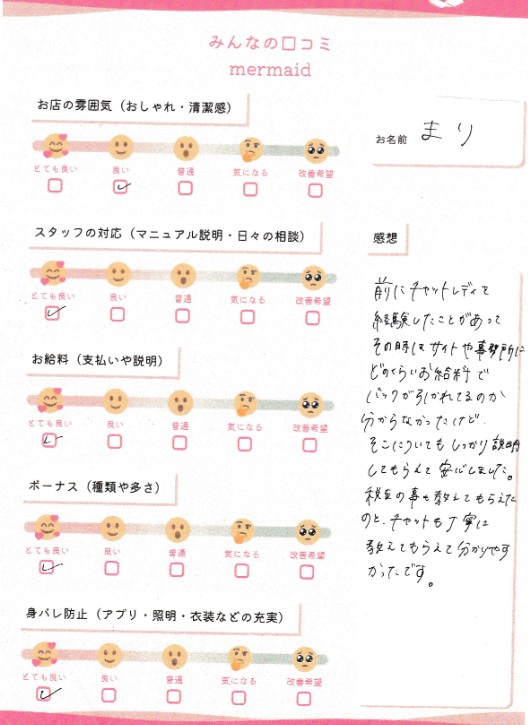 みんなの口コミ
mermaid
お店の雰囲気（おしゃれ・清潔感）
とても良い 良い 普通 気になる 改善希望
スタッフの対応（マニュアル説明・日々の相談）
とても良い 良い 普通 気になる 改善希望
お給料（支払いや説明）
とても良い 良い 普通 気になる 改善希望
ボーナス（種類や多さ）
とても良い 良い 普通 気になる 改善希望
身バレ防止（アプリ・照明・衣装などの充実）
とても良い 良い 普通 気になる 改善希望
お名前 まり
感想
前にチャットレディで
経験したことがあって
その時はサイトや事務所に
どのくらいお給料で
バックが引かれてるのか
分からなかったけど、
そこについてもしっかり説明
してもらえて安心しました。
税金の事も教えてもらえた
のと、チャットも丁寧に
教えてもらえて分かりやす
かったです。